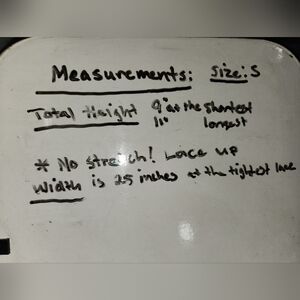 Measurements: Size: S
Total Height 9" at the shortest
11" longest
* No stretch! Lace up
Width is 25 inches at the tightest lace